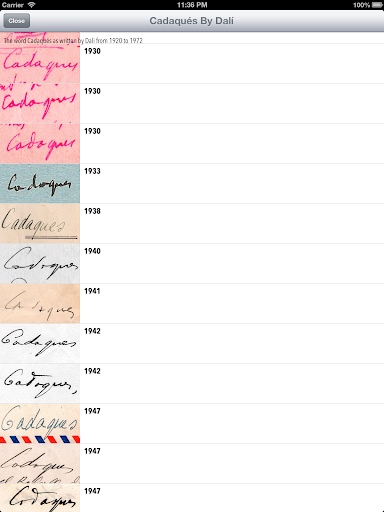 Carrier 11:36 PM 100%
Close Cadaqués By Dalí
The word Cadaqués as written by Dalí from 1920 to 1972
Cadaqués 1930
Cadaqués 1930
Cadaqués 1930
Cadaques 1933
Cadaques 1938
Cadaques 1940
Cadaques 1941
Cadaques 1942
Cadaques, 1942
Cadaques 1947
Cadaques 1947
Cadaques 1947